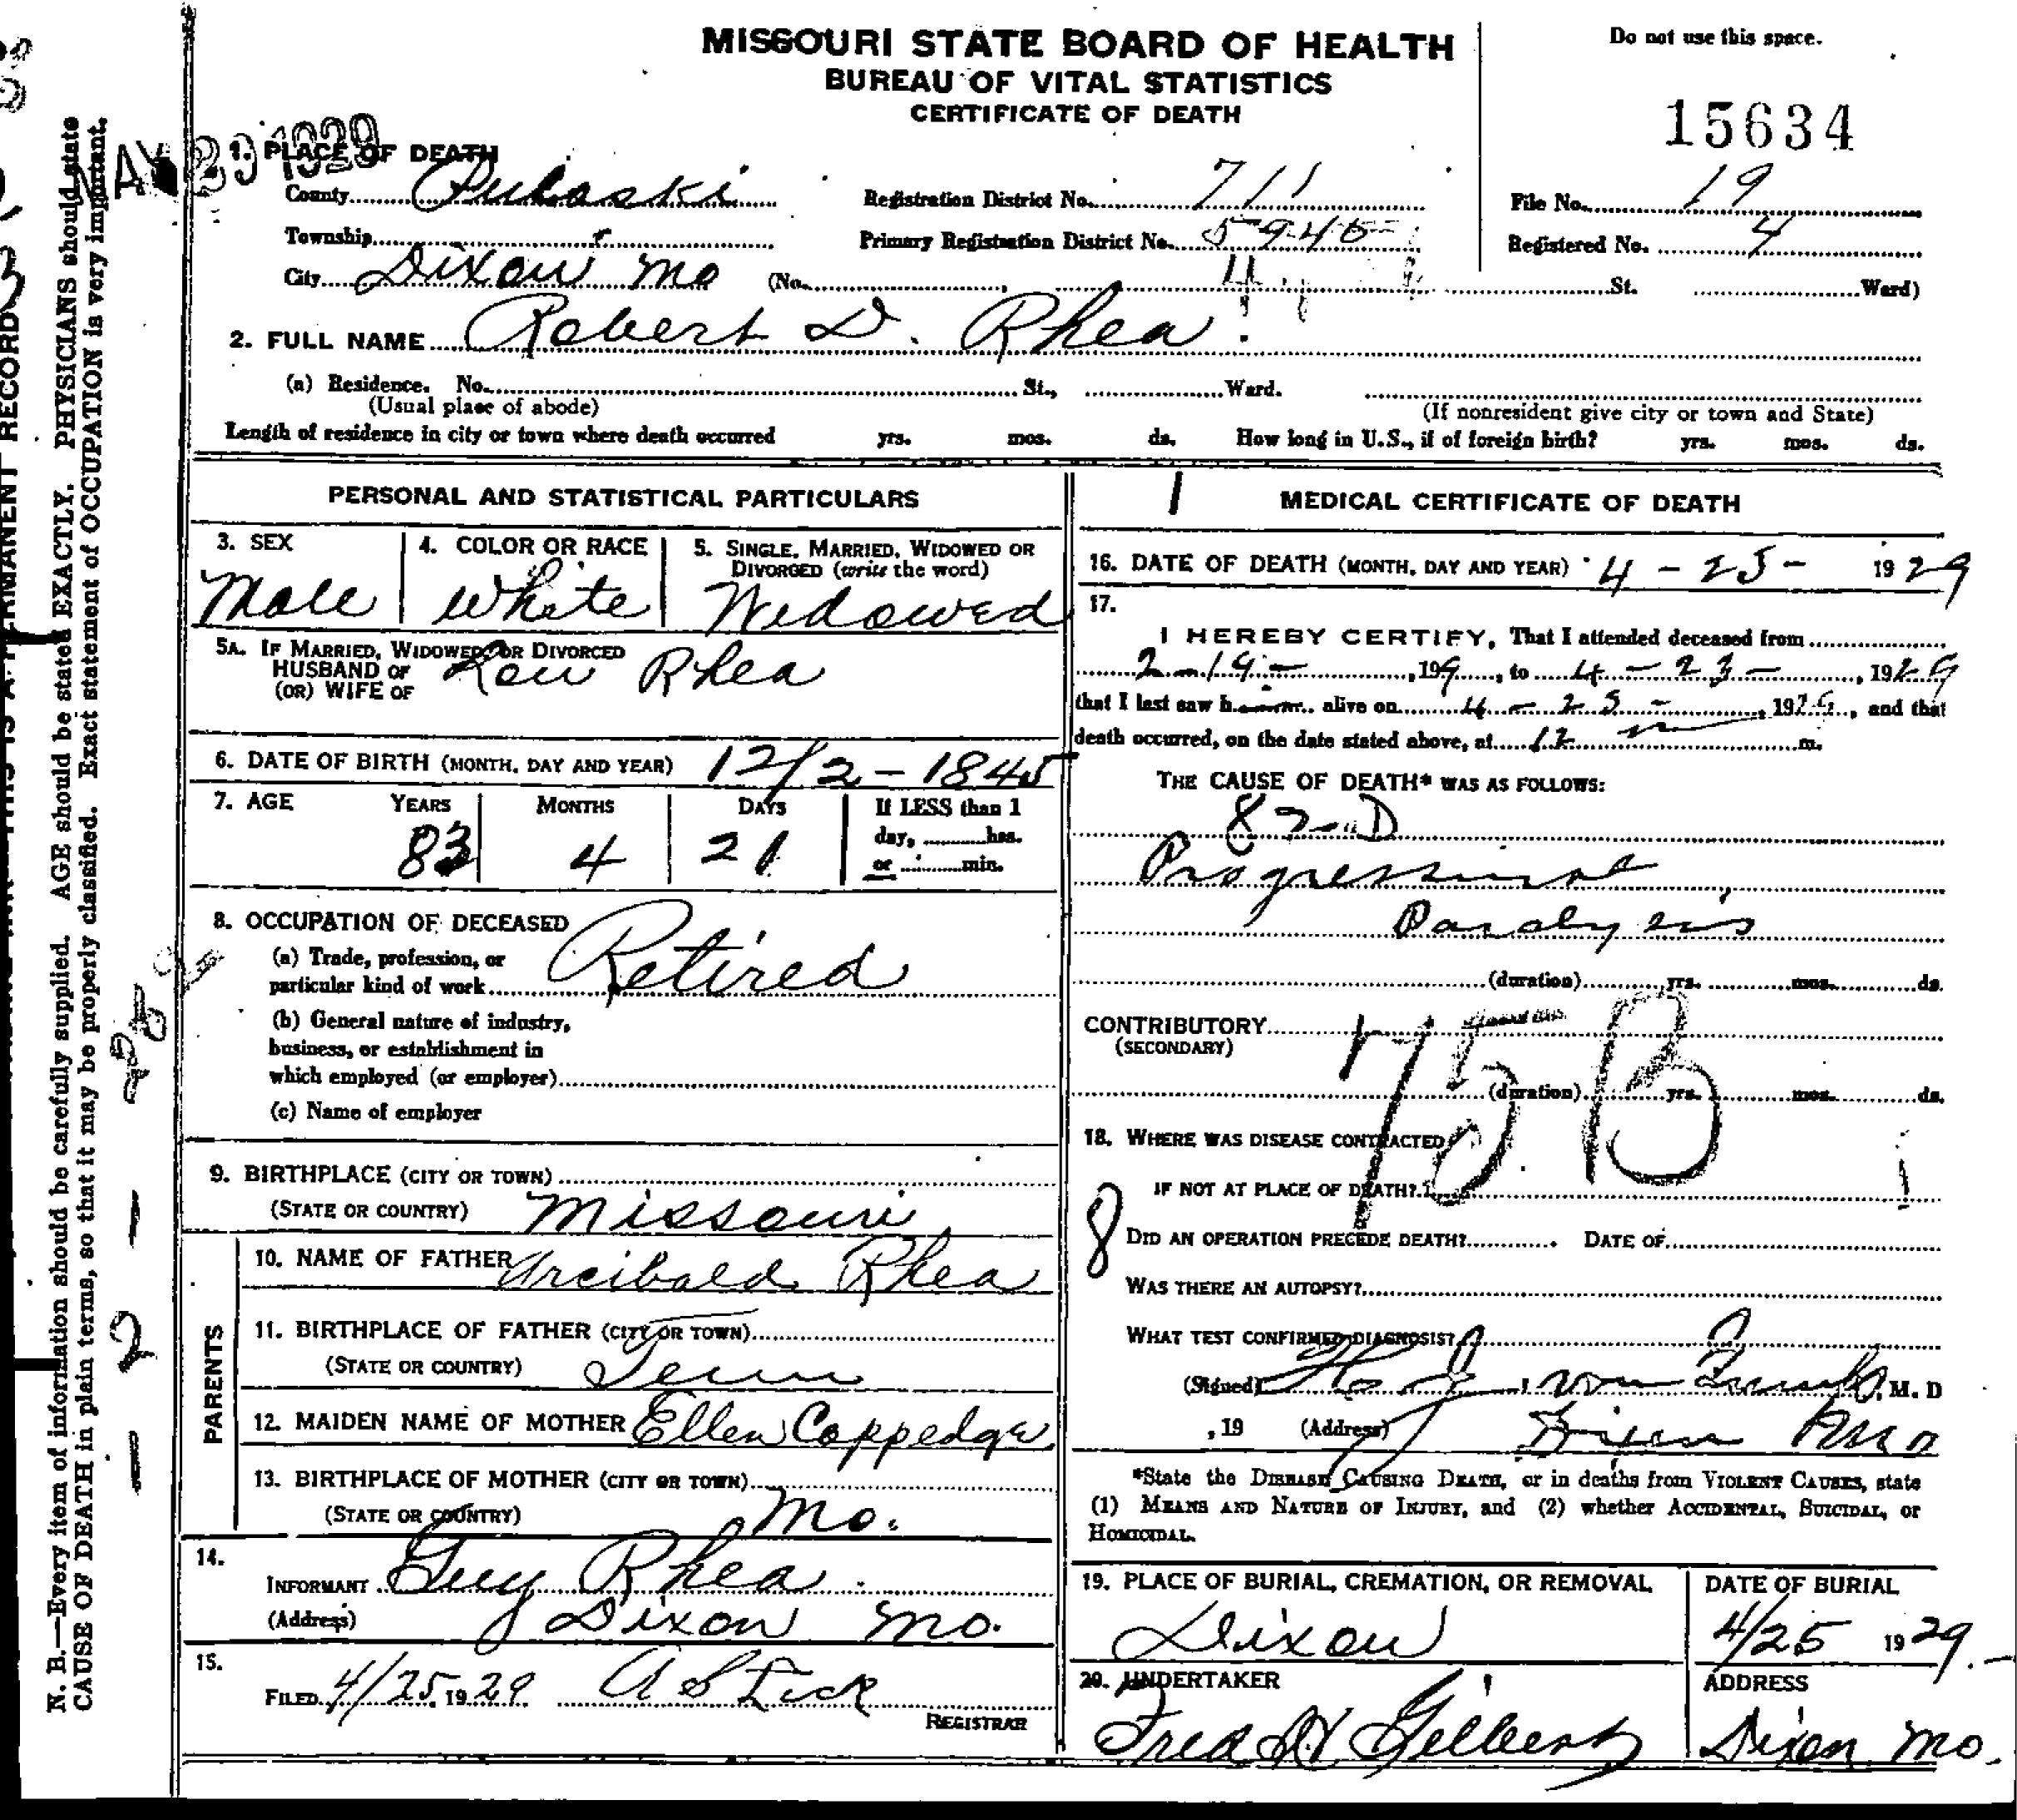 MISSOURI STATE BOARD OF HEALTH
BUREAU OF VITAL STATISTICS
CERTIFICATE OF DEATH
Do not use this space.
15634
MAY 29 1929
1. PLACE OF DEATH
County Pulaski Registration District No. 711 File No. 19
Township Primary Registration District No. 5945 Registered No. 4
City Dixon Mo (No. St. Ward)
2. FULL NAME Robert D. Rhea
(a) Residence. No. St., Ward.
(Usual place of abode) (If nonresident give city or town and State)
Length of residence in city or town where death occurred yrs. mos. ds. How long in U.S., if of foreign birth? yrs. mos. ds.
PERSONAL AND STATISTICAL PARTICULARS
3. SEX 4. COLOR OR RACE 5. SINGLE, MARRIED, WIDOWED OR
DIVORCED (write the word)
Male White Widowed
5A. IF MARRIED, WIDOWED, OR DIVORCED
HUSBAND OF
(OR) WIFE OF Rhea
6. DATE OF BIRTH (MONTH, DAY AND YEAR) 12/2-1845
7. AGE YEARS MONTHS DAYS If LESS than 1
day, hrs.
or min.
83 4 21
8. OCCUPATION OF DECEASED
(a) Trade, profession, or
particular kind of work Retired
(b) General nature of industry,
business, or establishment in
which employed (or employer)
(c) Name of employer
9. BIRTHPLACE (CITY OR TOWN)
(STATE OR COUNTRY) Missouri
PARENTS
10. NAME OF FATHER Arcibald Rhea
11. BIRTHPLACE OF FATHER (CITY OR TOWN)
(STATE OR COUNTRY) Tenn
12. MAIDEN NAME OF MOTHER Ellen Coppedge
13. BIRTHPLACE OF MOTHER (CITY OR TOWN)
(STATE OR COUNTRY) Mo.
14.
INFORMANT Guy Rhea
(Address) Dixon Mo.
15.
FILED 4/25, 1929
REGISTRAR
1 MEDICAL CERTIFICATE OF DEATH
16. DATE OF DEATH (MONTH, DAY AND YEAR) 4-23- 1929
17.
I HEREBY CERTIFY, That I attended deceased from
2-19-, 199, to 4-23-, 1929
that I last saw h alive on 4-23-, 19, and that
death occurred, on the date stated above, at 12 m.
THE CAUSE OF DEATH* WAS AS FOLLOWS:
82 D
Paralysis
(duration) yrs. mos. ds.
CONTRIBUTORY
(SECONDARY)
75 B
(duration) yrs. mos. ds.
18. WHERE WAS DISEASE CONTRACTED
IF NOT AT PLACE OF DEATH?
8
DID AN OPERATION PRECEDE DEATH? DATE OF
WAS THERE AN AUTOPSY?
WHAT TEST CONFIRMED DIAGNOSIS?
(Signed) M. D
, 19 (Address) Dixon Mo
*State the DISEASE CAUSING DEATH, or in deaths from VIOLENT CAUSES, state
(1) MEANS AND NATURE OF INJURY, and (2) whether ACCIDENTAL, SUICIDAL, or
HOMICIDAL.
19. PLACE OF BURIAL, CREMATION, OR REMOVAL DATE OF BURIAL
Dixon 4/25 1929.
20. UNDERTAKER ADDRESS
Fred H Gilbert Dixon Mo.
N. B.—Every item of information should be carefully supplied. AGE should be stated EXACTLY. PHYSICIANS should state
CAUSE OF DEATH in plain terms, so that it may be properly classified. Exact statement of OCCUPATION is very important.